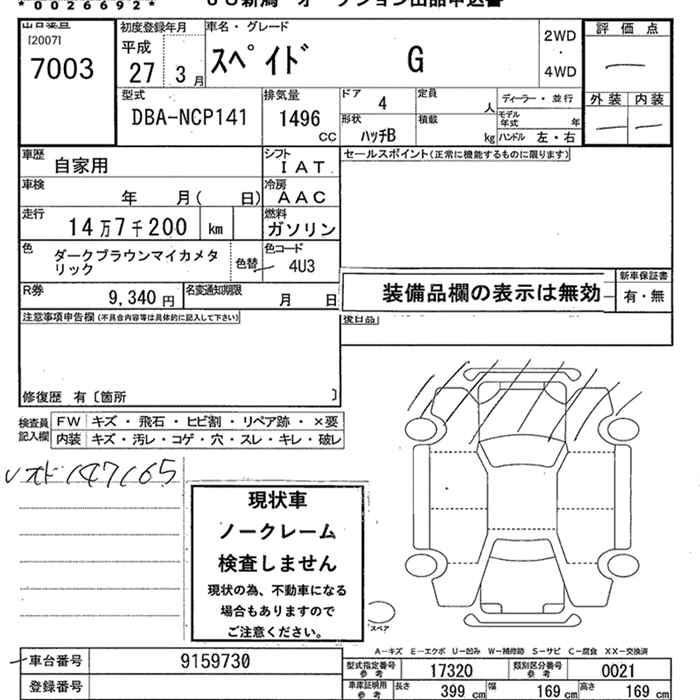 *0026692*
出品番号
[2007]
7003
初度登録年月
平成
27 3月
車名・グレード
スペイド G
2WD
・
4WD
評価点
外装 内装
型式
DBA-NCP141
排気量
1496
CC
ドア 4
形状
ハッチB
定員 人
積載 kg
ディーラー・並行
モデル年式 年
ハンドル 左・右
車歴 自家用
シフト IAT
セールスポイント(正常に機能するものに限ります)
車検 年 月( 日)
冷房 AAC
走行 14万7千200 km
燃料
ガソリン
色 ダークブラウンマイカメタ
リック
色替
色コード
4U3
R券 9,340円
名変通知期限 月 日
装備品欄の表示は無効
新車保証書
有・無
注意事項申告欄(不具合内容等は具体的に記入して下さい)
後日品
修復歴 有〔箇所 〕
検査員
記入欄
FW キズ・飛石・ヒビ割・リペア跡・×要
内装 キズ・汚レ・コゲ・穴・スレ・キレ・破レ
ソオド147165
現状車
ノークレーム
検査しません
現状の為、不動車になる
場合もありますので
ご注意ください。
スペア
A-キズ E-エクボ U-凹み W-補修跡 S-サビ C-腐食 XX-交換済
車台番号 9159730
型式指定番号
参考
17320
類別区分番号
参考
0021
登録番号
車庫証明用
参考
長さ 399cm 幅 169cm 高さ 169cm